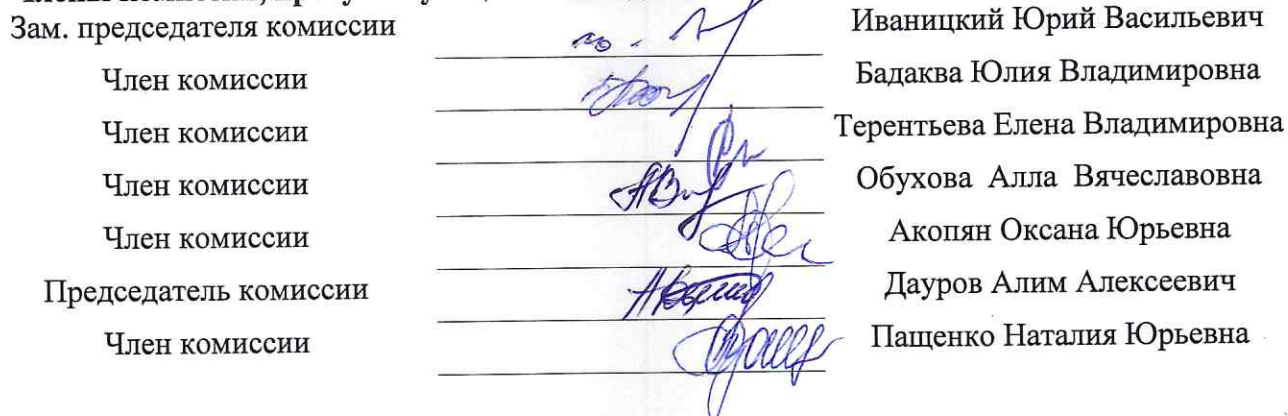 Зам. председателя комиссии Иваницкий Юрий Васильевич
Член комиссии Бадаква Юлия Владимировна
Член комиссии Терентьева Елена Владимировна
Член комиссии Обухова Алла Вячеславовна
Член комиссии Акопян Оксана Юрьевна
Председатель комиссии Дауров Алим Алексеевич
Член комиссии Пащенко Наталия Юрьевна